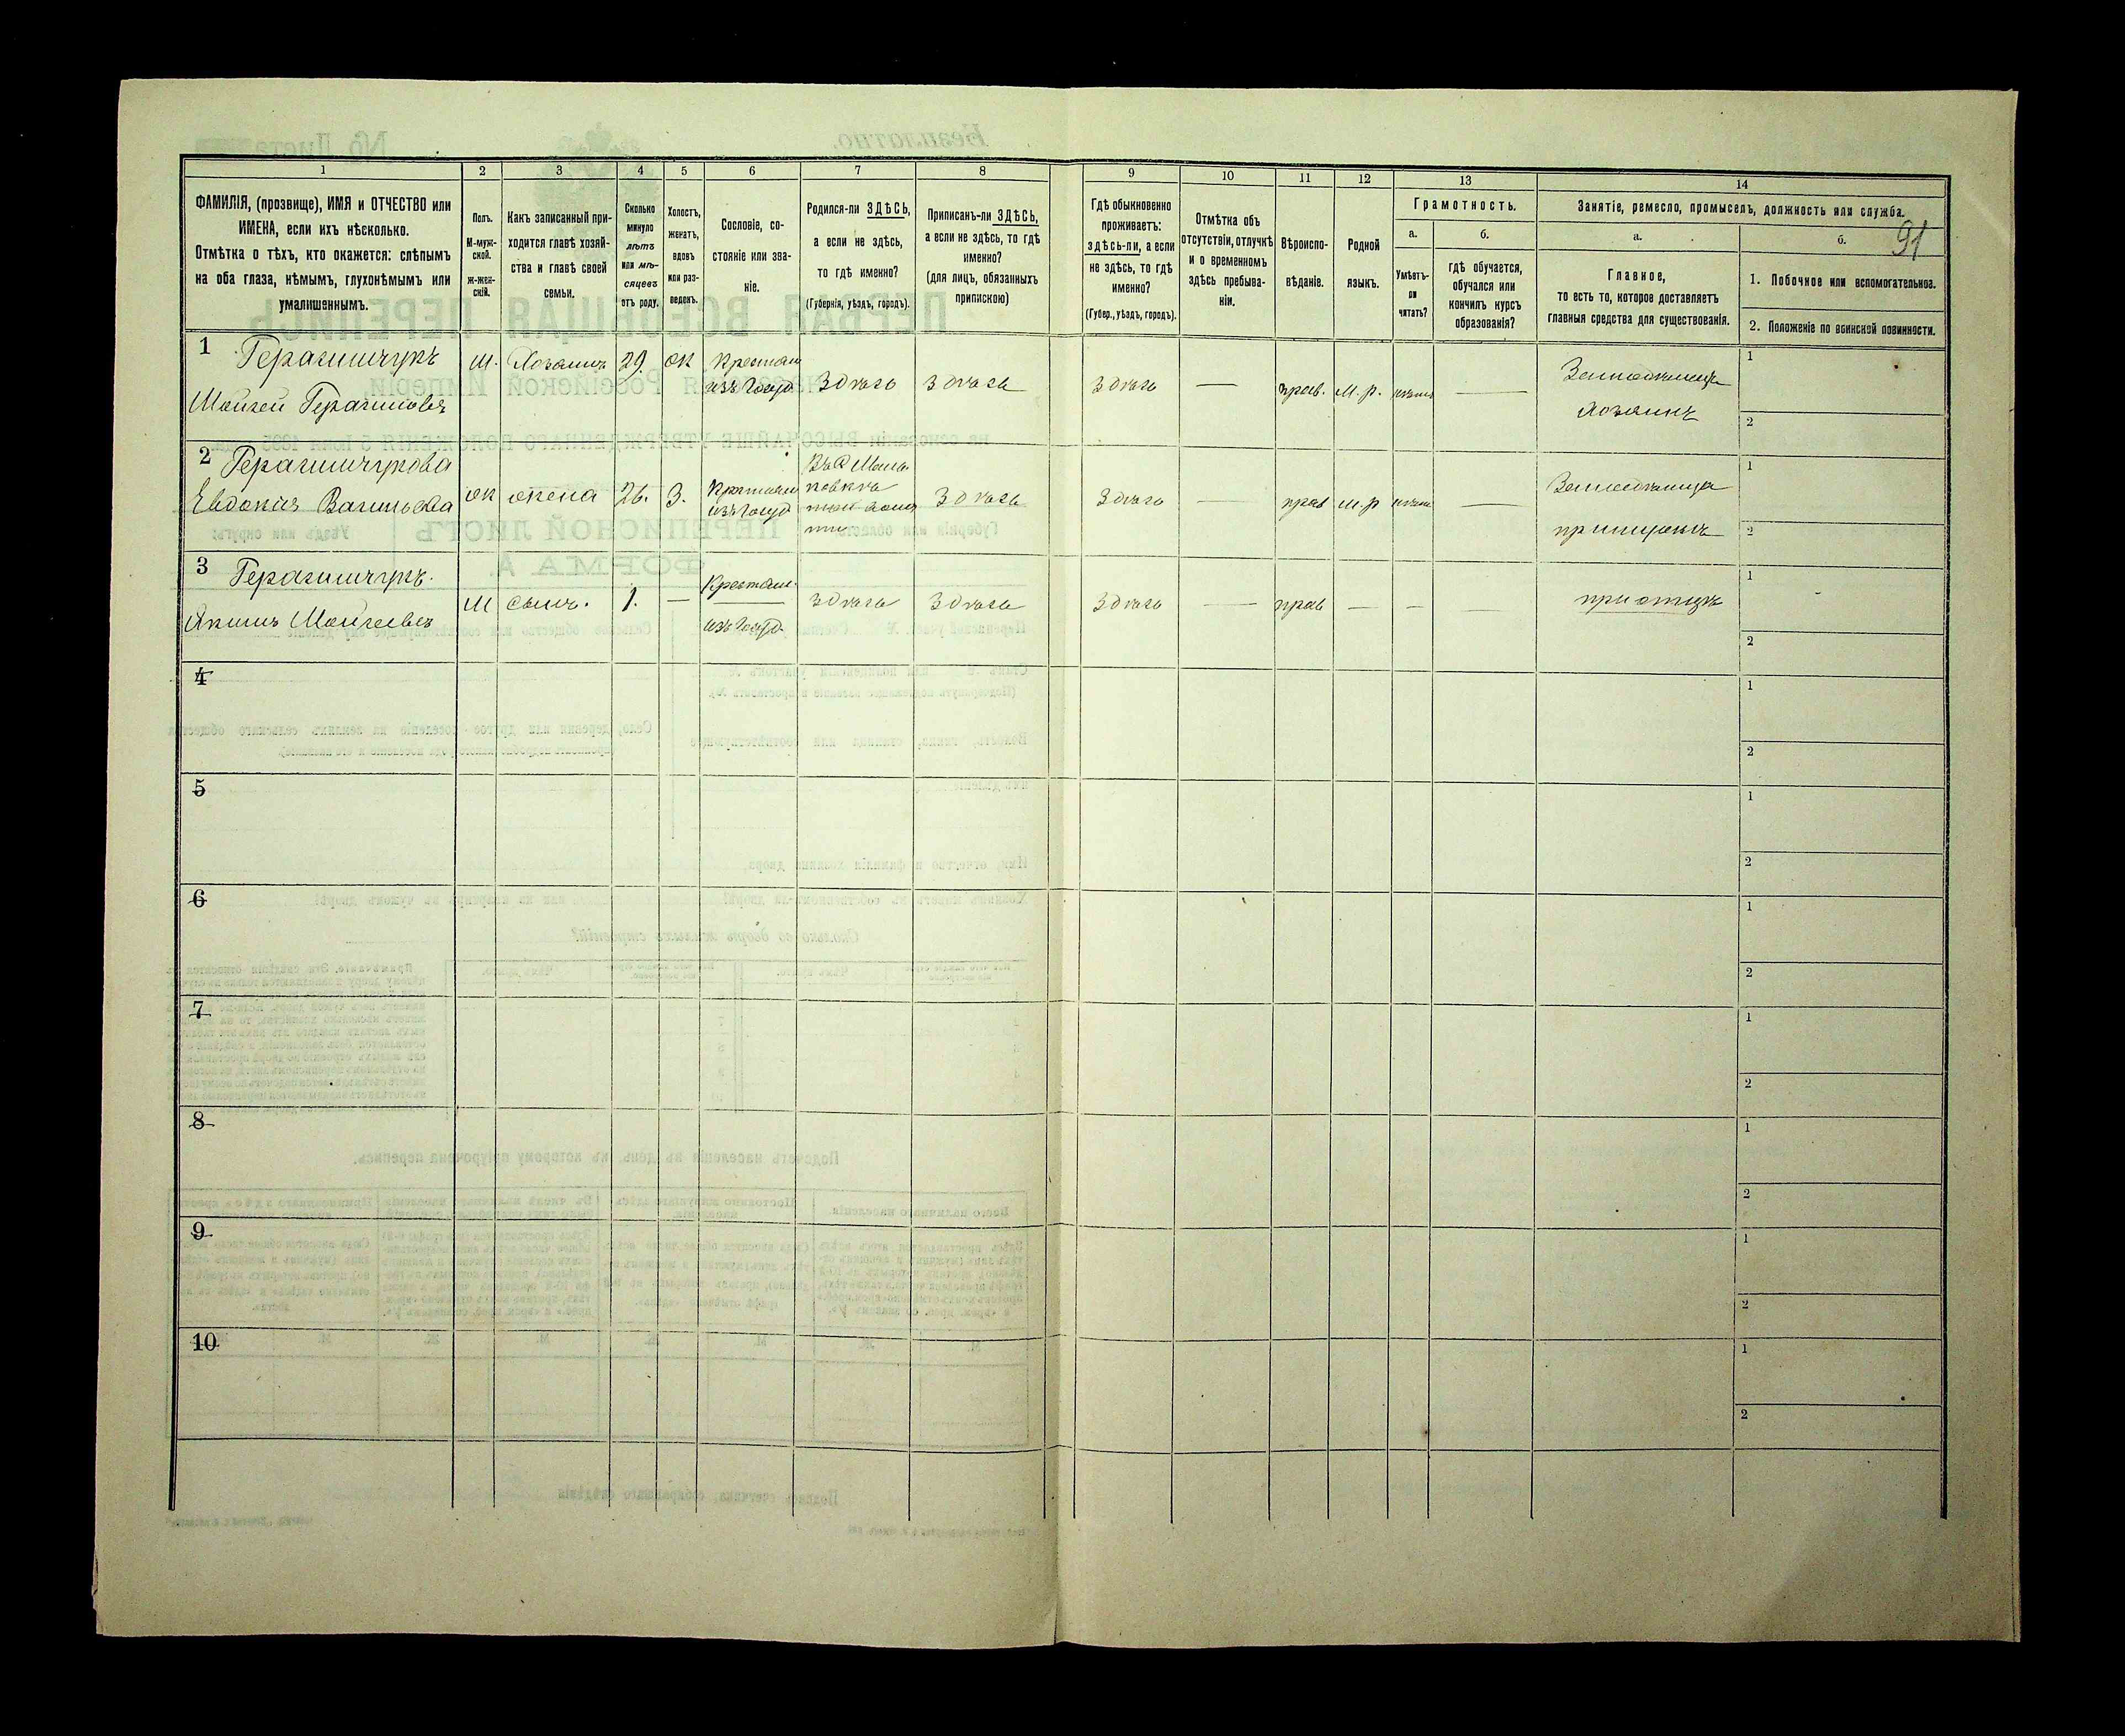 91
1 2 3 4 5 6 7 8 9 10 11 12 13 14
ФАМИЛІЯ, (прозвище), ИМЯ и ОТЧЕСТВО или
ИМЕНА, если ихъ нѣсколько.
Отмѣтка о тѣхъ, кто окажется: слѣпымъ
на оба глаза, нѣмымъ, глухонѣмымъ или
умалишеннымъ.
Полъ.
М-муж-
ской.
ж-жен-
скій.
Какъ записанный при-
ходится главѣ хозяй-
ства и главѣ своей
семьи.
Сколько
минуло
лѣтъ
или мѣ-
сяцевъ
отъ роду.
Холостъ,
женатъ,
вдовъ
или раз-
веденъ.
Сословіе, со-
стояніе или зва-
ніе.
Родился-ли ЗДѢСЬ,
а если не здѣсь,
то гдѣ именно?
(Губернія, уѣздъ, городъ).
Приписанъ-ли ЗДѢСЬ,
а если не здѣсь, то гдѣ
именно?
(для лицъ, обязанныхъ
припискою)
Гдѣ обыкновенно
проживаетъ:
здѣсь-ли, а если
не здѣсь, то гдѣ
именно?
(Губер., уѣздъ, городъ).
Отмѣтка объ
отсутствіи, отлучкѣ
и о временномъ
здѣсь пребыва-
ніи.
Вѣроиспо-
вѣданіе.
Родной
языкъ.
Грамотность.
а.
Умѣетъ-
ли
читать?
б.
гдѣ обучается,
обучался или
кончилъ курсъ
образованія?
Занятіе, ремесло, промыселъ, должность или служба.
а.
Главное,
то есть то, которое доставляетъ
главныя средства для существованія.
б.
1. Побочное или вспомогательное.
2. Положеніе по воинской повинности.
1 Герасимчукъ
Мойсей Герасимовъ
М. Хозяинъ 29. ж Крестьян
изъ Госуд. Здѣсь Здѣсь Здѣсь — прав. М. р. —
Земледѣлецъ
хозяинъ
1
2
2 Герасимчукова
Евдокія Васильева
ж жена 26. З. Крестьян
изъ Госуд Здѣсь Здѣсь — прав м. р —
Земледѣлица
при мужѣ
1
2
3 Герасимчукъ.
Якимъ Мойсеевъ
М сынъ. 1. — Крестьян.
изъ Госуд. Здѣсь Здѣсь Здѣсь — прав — — —
при отцѣ
1
2
4
1
2
5
1
2
6
1
2
7
1
2
8
1
2
9
1
2
10
1
2